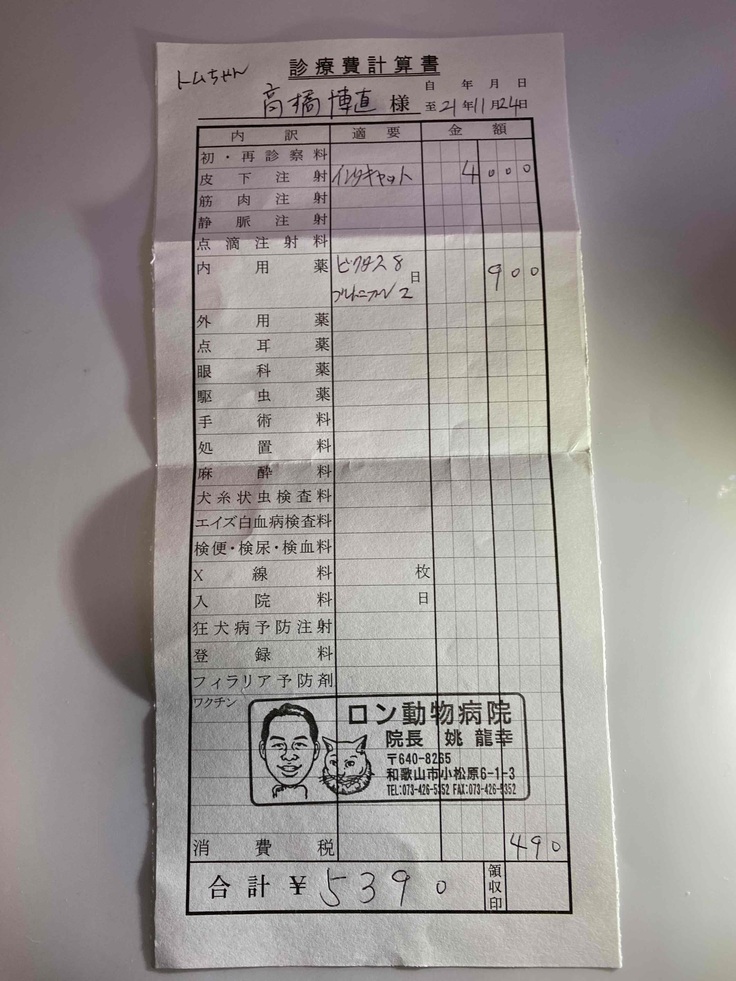 トムちゃん
診療費計算書
自 年 月 日
高橋博直 様 至21年11月24日
内訳 適要 金額
初・再診察料
皮下注射 インタキャット 4000
筋肉注射
静脈注射
点滴注射料
内用薬 ビクタス8日 900
プルトニフル2
外用薬
点耳薬
眼科薬
駆虫薬
手術料
処置料
麻酔料
犬糸状虫検査料
エイズ白血病検査料
検便・検尿・検血料
X線料 枚
入院料 日
狂犬病予防注射
登録料
フィラリア予防剤
ワクチン
ロン動物病院
院長 姚 龍幸
〒640-8265
和歌山市小松原6-1-3
TEL:073-426-5352 FAX:073-426-5352
消費税 490
合計 ¥5390 領収印